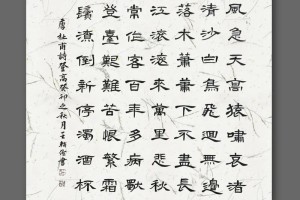 風急天高猿嘯哀渚
清沙白鳥飛迴無邊
落木蕭蕭下不盡長
江滾滾來萬里悲秋
常作客百年多病獨
登臺艱難苦恨繁霜
鬢潦倒新停濁酒杯
唐杜甫詩登高癸卯之秋月書